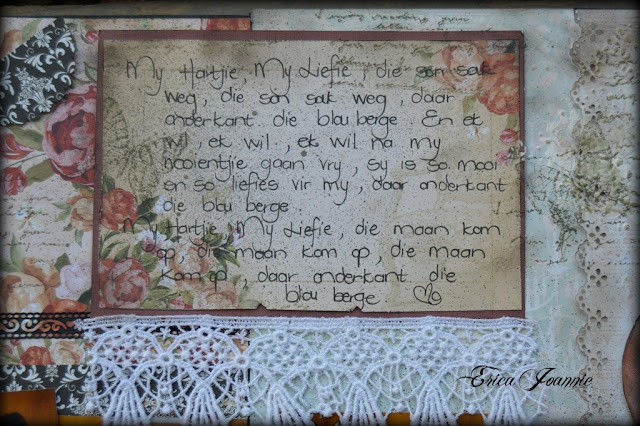 My Hartjie, My Liefie, die son sak
weg, die son sak weg, daar
anderkant die blou berge En ek
wil, ek wil, ek wil na my
nooientjie gaan vry, sy is so mooi
en so liefies vir my, daar anderkant
die blou berge !
My Hartjie, My Liefie, die maan kom
op, die maan kom op, die maan
kom op, daar anderkant die
blou berge
Erica Joannie